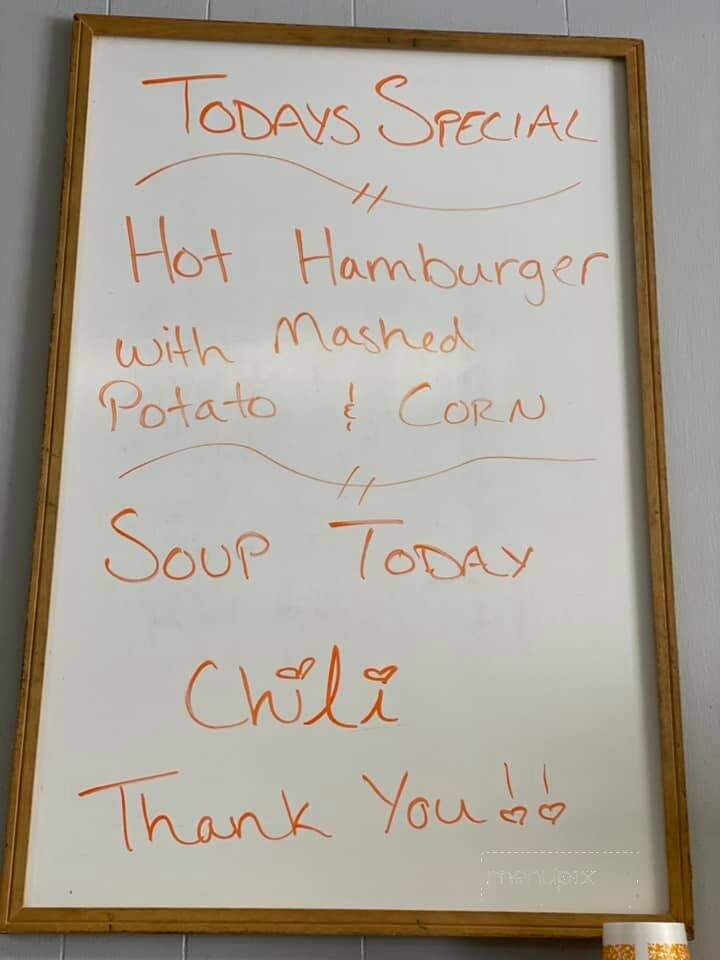 TODAYS SPECIAL
Hot Hamburger
with Mashed
Potato & CORN
SOUP TODAY
Chili
Thank You!!
menupix